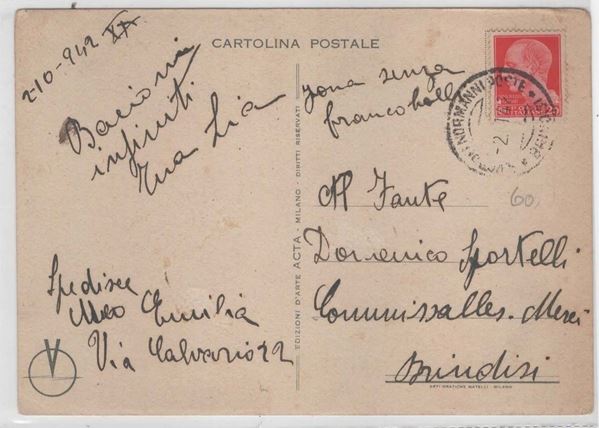 CARTOLINA POSTALE
2-10-942 XX
Bacioni
infiniti
tua Lia
zona senza
francobolli
60,
Al Fante
Domenico Sportelli
Commissalles. Merci
Brindisi
Spedisce
Meo Emilia
Via Calvario 22
EDIZIONI D'ARTE ACTA - MILANO - DIRITTI RISERVATI
ARTI GRAFICHE MATELLI - MILANO